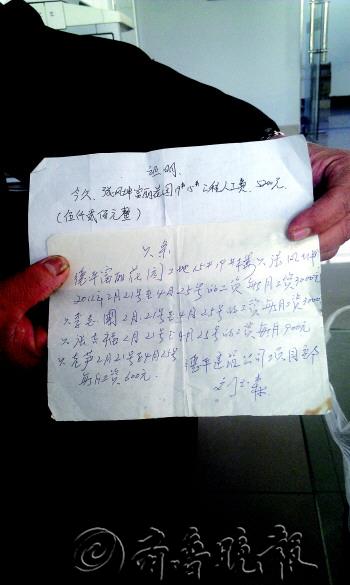 证明.
今欠、张凤坤富丽花园19# 15# 工程人工费、5200元.
(伍仟贰佰元整)
欠条
德平富丽花园工地15#19#楼欠张凤坤
2012年2月21号至4月25号的工资每月工资3000元
欠李志国2月21号至4月25号的工资每月工资3000
欠张吉福2月21号至4月25号的工资每月900元
2月21号至4月25号
每月工资600元.
德平建筑公司项目部
齐鲁晚报